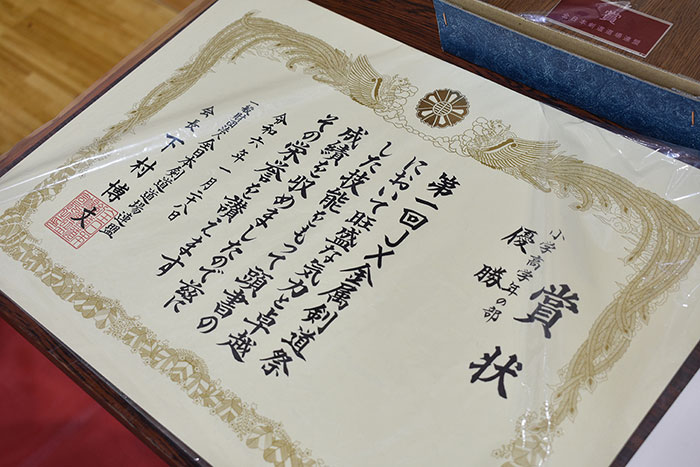 賞状
小学高学年の部
優勝
第一回JX金属剣道祭
において卓越
した技能と旺盛な気力をもって頭書の
成績を収めましたので茲に
その栄誉を讃えます
令和六年一月二十八日
一般財団法人全日本剣道道場連盟
会長 下村博文
賞
全日本剣道道場連盟